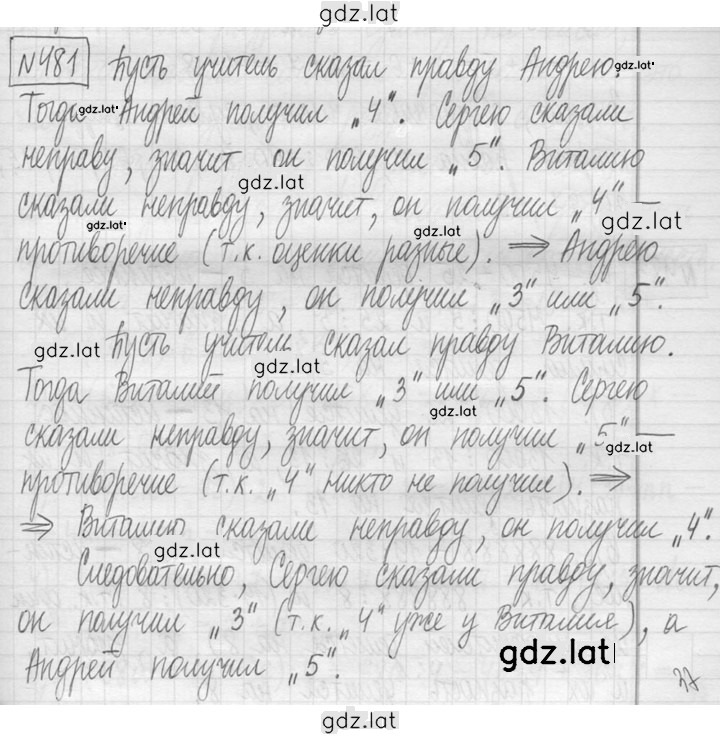 gdz.lat
№481 Пусть учитель сказал правду Андрею. gdz.lat
Тогда gdz.lat Андрей получил „4“. Сергею сказали
неправу, значит он получил „5“. Виталию
gdz.lat
сказали неправду, значит, он получил „4“ —
gdz.lat gdz.lat gdz.lat
противоречие (т.к. оценки разные). ⇒ Андрею
сказали неправду, он получил „3“ или „5“.
gdz.lat Пусть учитель сказал правду Виталию.
gdz.lat
Тогда Виталий получил „3“ или „5“. Сергею
gdz.lat
сказали неправду, значит, он получил „5“ —
gdz.lat
противоречие (т.к. „4“ никто не получил). ⇒
⇒ Виталию сказали неправду, он получил „4“.
gdz.lat
Следовательно, Сергею сказали правду, значит,
он получил „3“ (т.к. „4“ уже у Виталия), а
gdz.lat
Андрей получил „5“.
gdz.lat